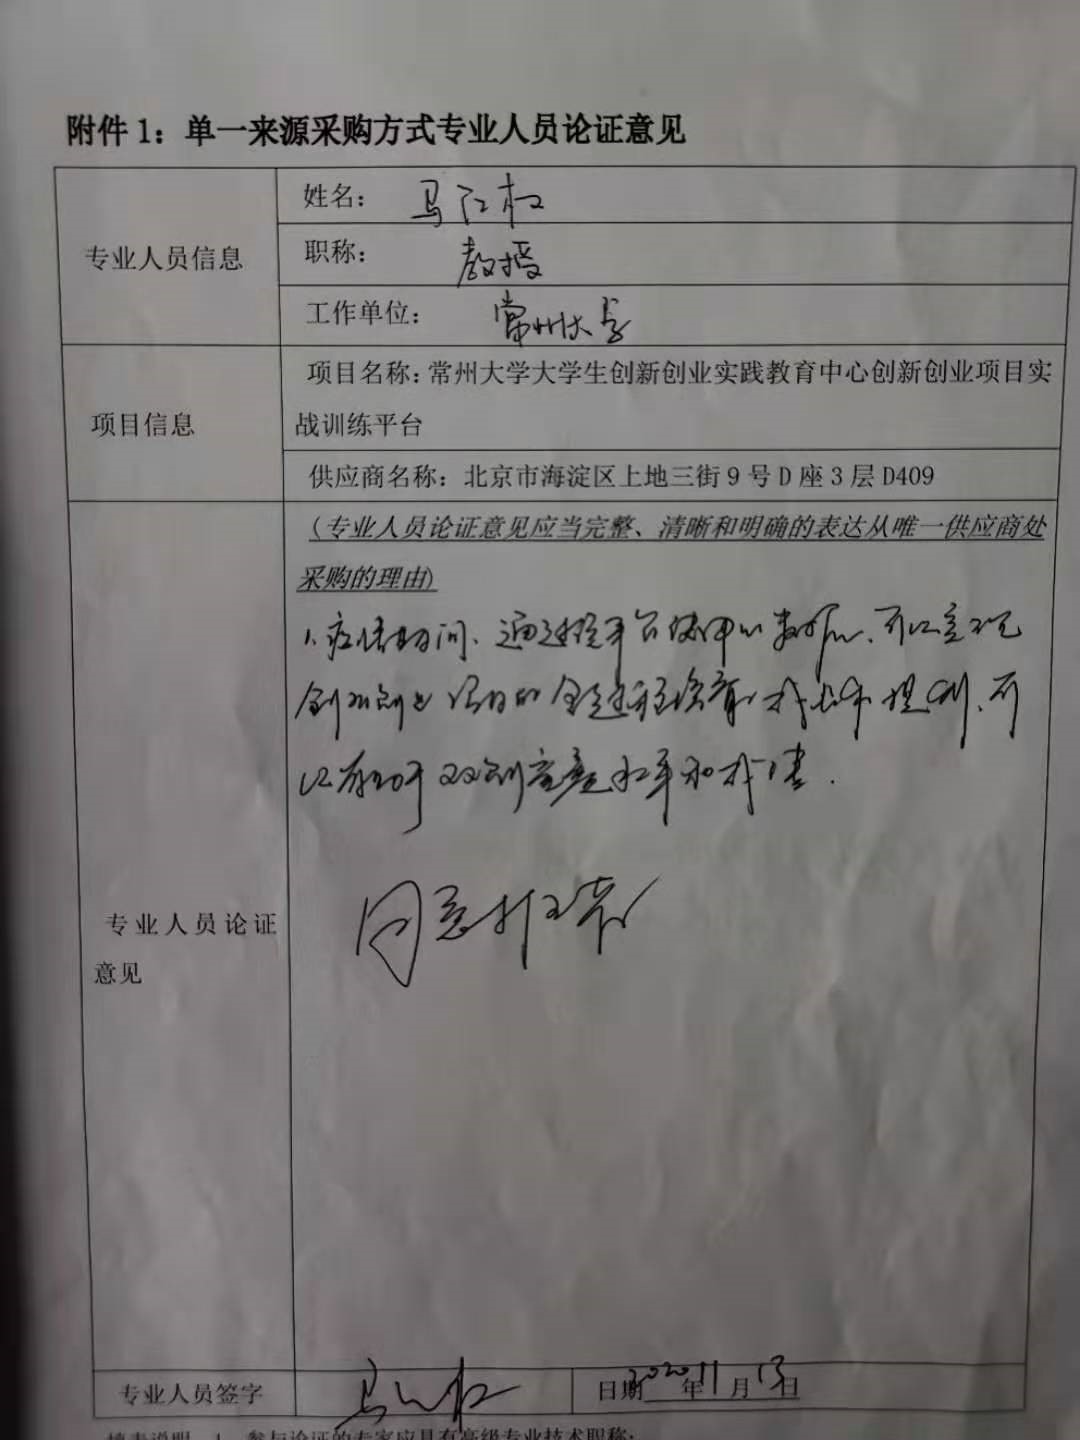 附件1：单一来源采购方式专业人员论证意见
专业人员信息
姓名： 马江权
职称： 教授
工作单位： 常州大学
项目信息
项目名称：常州大学大学生创新创业实践教育中心创新创业项目实
战训练平台
供应商名称：北京市海淀区上地三街9号D座3层D409
专业人员论证
意见
（专业人员论证意见应当完整、清晰和明确的表达从唯一供应商处
采购的理由）
1、疫情期间、通过该平台使用的、可以实现
创新创业项目的全过程培育、可
以有助于双创意识水平和
同意推荐
专业人员签字
马江权
日期2020年11月13日
填表说明：1、参与论证的专家应具有高级专业技术职称；